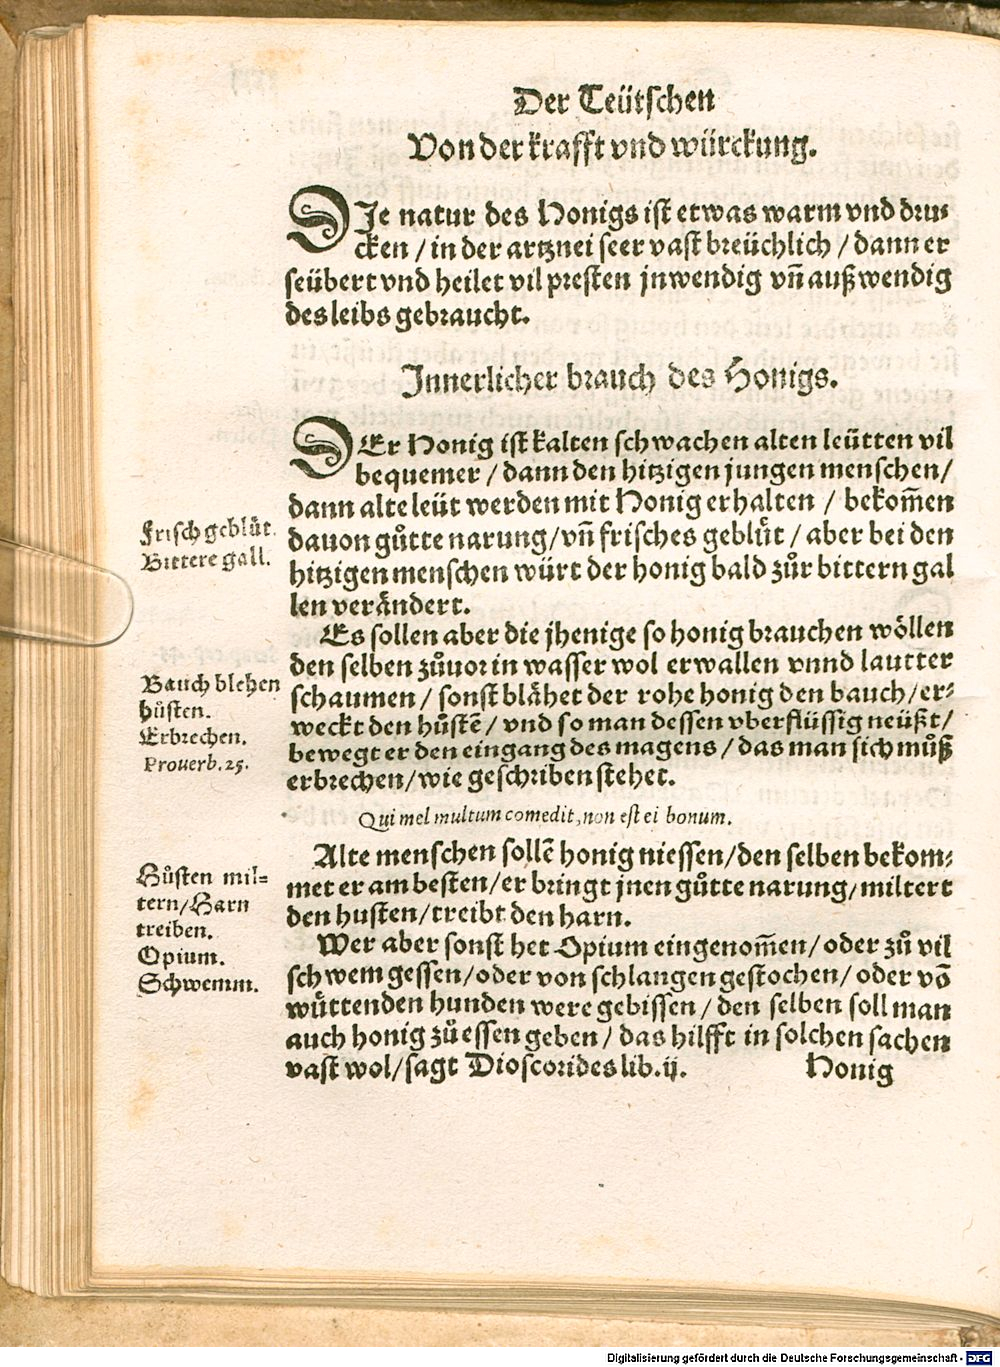 Der Teütschen
Von der krafft vnd würckung.
DJe natur des Honigs ist etwas warm vnd dru-
cken / in der artznei seer vast breüchlich / dann er
seübert vnd heilet vil presten jnwendig vñ außwendig
des leibs gebraucht.
Jnnerlicher brauch des Honigs.
DEr Honig ist kalten schwachen alten leütten vil
bequemer / dann den hitzigen jungen menschen /
dann alte leüt werden mit Honig erhalten / bekom̃en
Frisch geblüt.
dauon gůtte narung / vñ frisches geblüt / aber bei den
Bittere gall.
hitzigen menschen würt der honig bald zůr bittern gal
len verändert.
Es sollen aber die jhenige so honig brauchen wöllen
den selben zůuor in wasser wol erwallen vnnd lautter
Bauch blehen
schaumen / sonst blähet der rohe honig den bauch / er-
hůsten.
weckt den hůstẽ / vnd so man dessen vberflüssig neüßt /
Erbrechen.
bewegt er den eingang des magens / das man sich můß
Prouerb. 25.
erbrechen / wie geschriben stehet.
Qui mel multum comedit, non est ei bonum.
Alte menschen sollẽ honig niessen / den selben bekom-
Hůsten mil-
met er am besten / er bringt jnen gůtte narung / miltert
tern / Harn
den husten / treibt den harn.
treiben.
Wer aber sonst het Opium eingenom̃en / oder zů vil
Opium.
schwem gessen / oder von schlangen gestochen / oder võ
Schwemm.
wüttenden hunden were gebissen / den selben soll man
auch honig zů essen geben / das hilfft in solchen sachen
vast wol / sagt Dioscorides lib. ij.
Honig
Digitalisierung gefördert durch die Deutsche Forschungsgemeinschaft - DFG